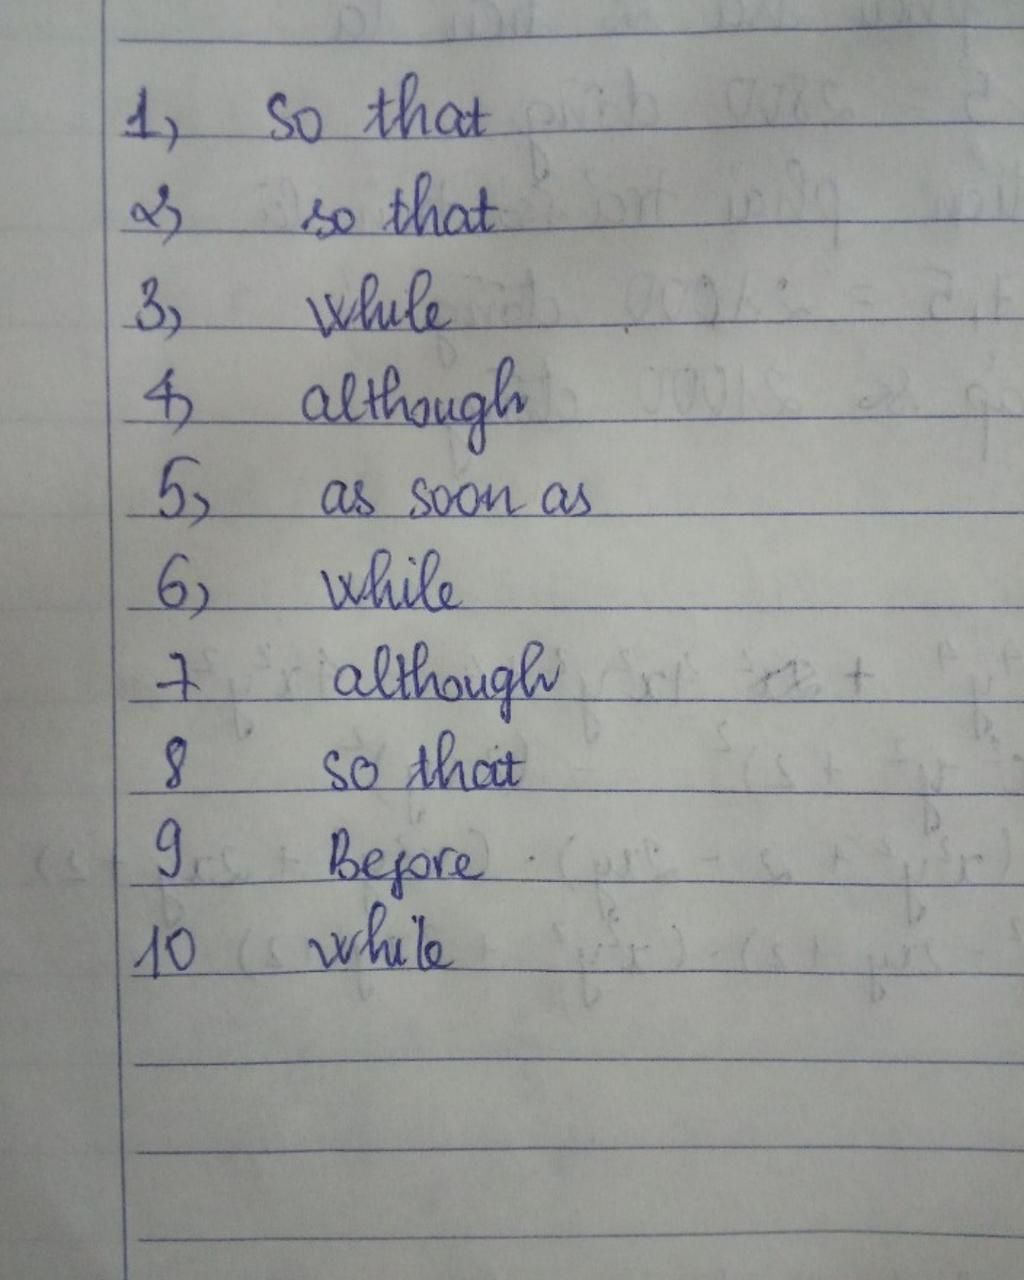 1, so that
2, so that
3, while
4, although
5, as soon as
6, while
7 although
8 so that
9 Before
10 while